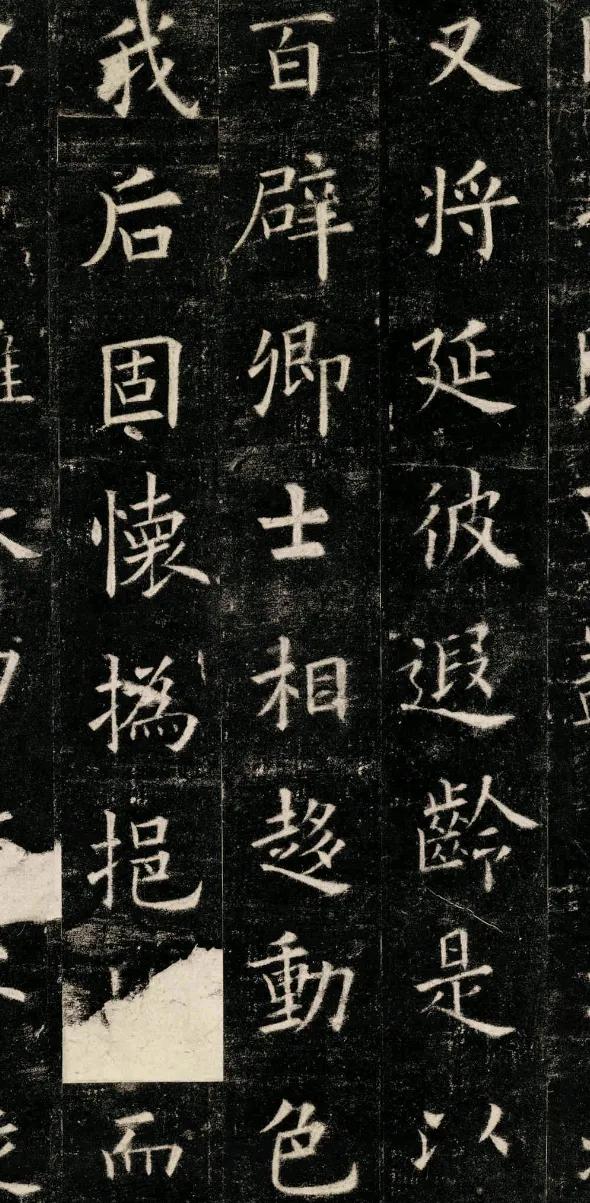 又将延彼遐齡是以
百辟卿士相趍動色
我后固懷撝挹而